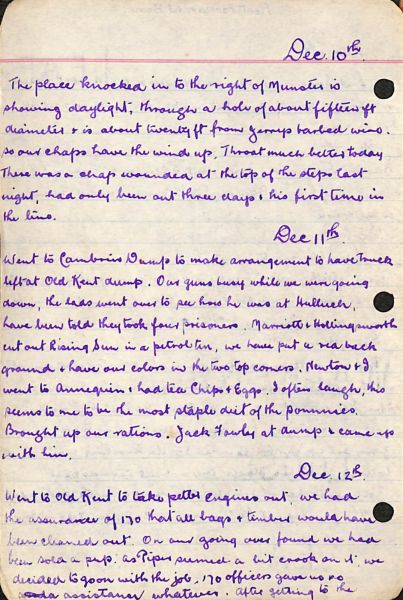 Dec. 10th.
The place knocked in to the right of Munster is
showing daylight, through a hole of about fifteen ft
diameter & is about twenty ft from Jerrys barbed wire.
so our chaps have the wind up, Throat much better today
There was a chap wounded at the top of the steps last
night, had only been out three days & his first time in
the line.
Dec 11th.
Went to Cambrin Dump to make arrangement to have truck
left at Old Kent dump. Our guns busy while we were going
down, the lads went over to see how he was at Hulluch,
have been told they took four prisoners. Marriott & Hollingsworth
cut out Rising Sun in a petrol tin, we have put a red back
ground & have our colors in the two top corners. Newton & I
went to Annequin & had tea Chips & Eggs. I often laugh, this
seems to me to be the most staple diet of the pommies.
Brought up our rations. Jack Fowley at dump & came up
with him.
Dec. 12th.
Went to Old Kent to take petter engines out, we had
the assurance of 170 that all bags & timber would have
been cleaned out. On our going over found we had
been sold a pup. as Piper seemed a bit crook on it, we
decided to go on with the job, 170 officers gave us no
assistance whatever. After getting to the